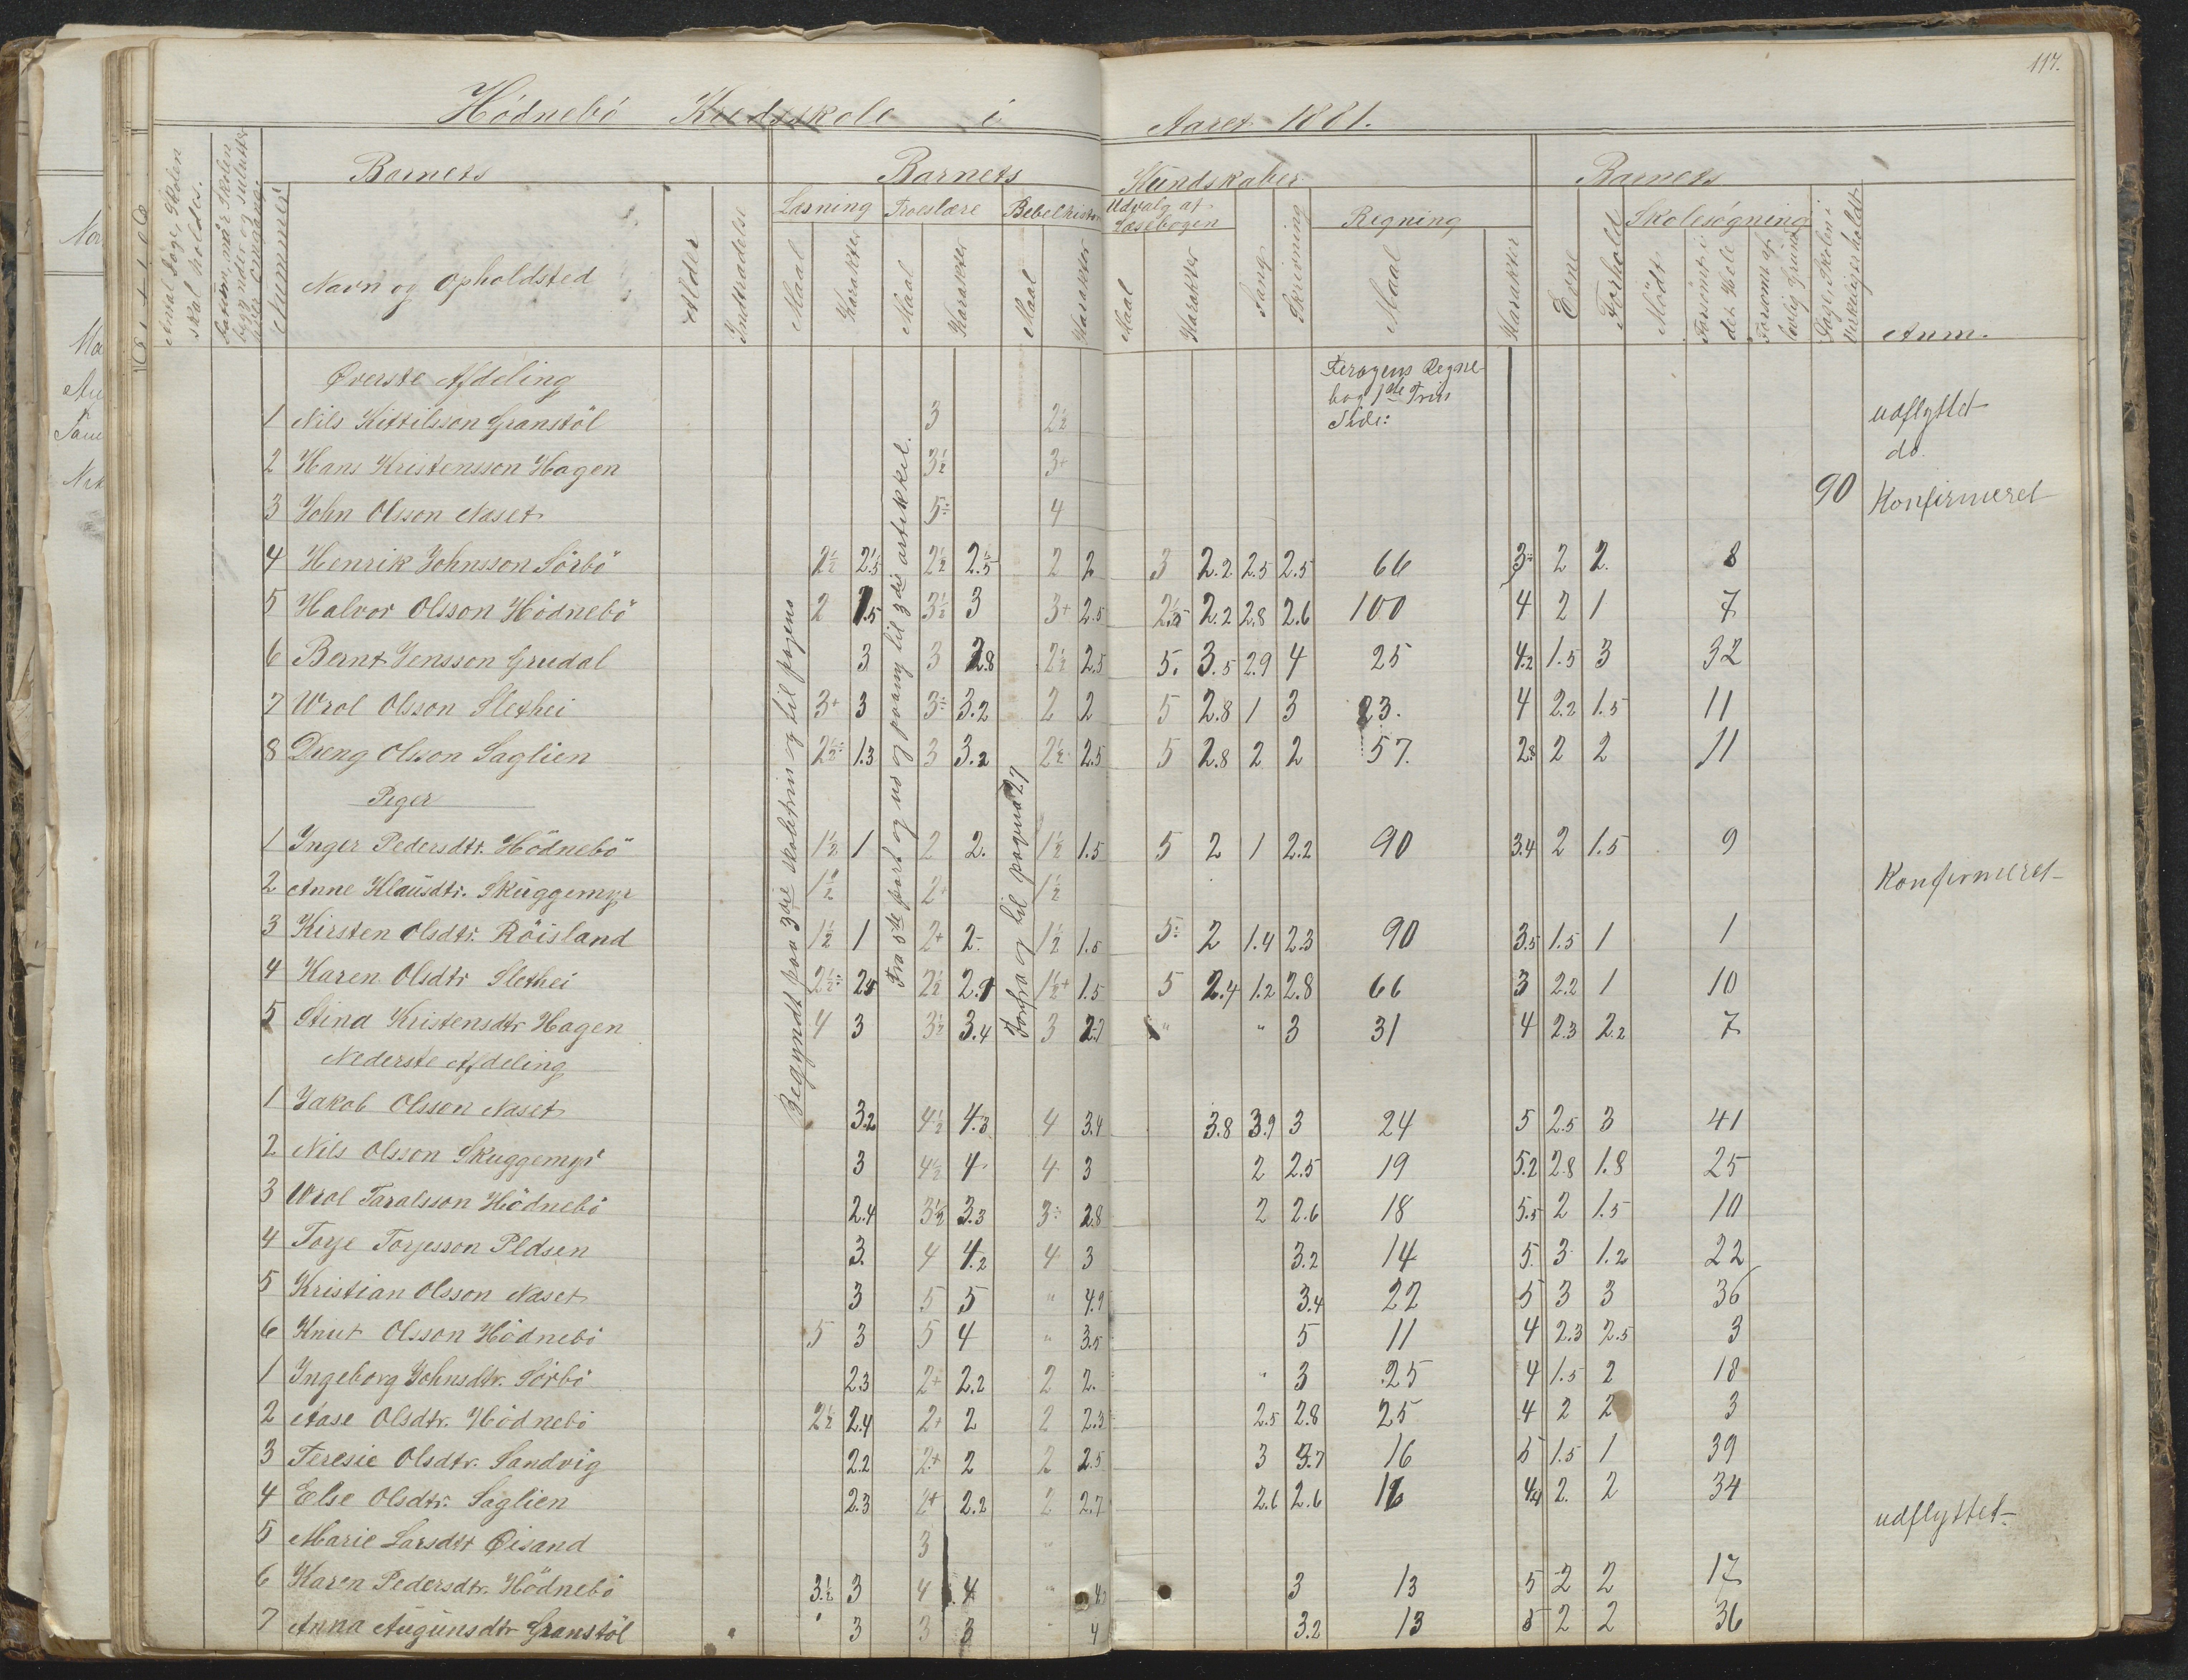 117.
Hödnebö Kredsskole i Aaret 1881.
Barnets Barnets Kundskaber Barnets
Antal Dage, Skolen skal holdes.
Datum, naar Skolen begynder og slutter
Nummer
Navn og Opholdsted
Alder
Indtrædelse
Læsning Troeslære Bibelhistor Udvalg af Læsebogen Sang Skrivning Regning Evne Forhold Skolesøgning
Maal Karakter Maal Karakter Maal Karakter Maal Karakter Maal Karakter
Mödt Forsömt i det Hele Forsömt af lovlig Grund Dage, Skolen i Virkeligh. holdt
Anm.
Begyndt paa 3die skoletrin og til pagina
Fra 5te part og ud og paany til 3die artikkel.
Forfra og til pagina 27
Øverste Afdeling
Regne-bog 1ste Trin Side:
1 Nils Kittilsson Granstöl 3 2½ udflyttet
2 Hans Kristensson Hagen 3½ 3+ do.
90
3 John Olsson Naset 5÷ 4 Konfirmeret
4 Henrik Johnsson Sörbö 2½ 2.5 2½ 2.5 2 2 3 2.2 2.5 2.5 66 3÷ 2 2. 8
5 Halvor Olsson Hödnebö 2 1.5 3½ 3 3+ 2.5 2.5 2.2 2.8 2.6 100 4 2 1 7
6 Bernt Jensson Grudal 3 3 2.8 2½ 2.5 5. 3.5 2.9 4 25 4.2 1.5 3 32
7 Wrol Olsson Slethei 3+ 3 3÷ 3.2 2 2 5 2.8 1 3 23. 4 2.2 1.5 11
8 Dreng Olsson Saglien 2½÷ 1.3 3 3.2 2½ 2.5 5 2.8 2 2 57. 2.8 2 2 11
Piger
1 Inger Pedersdtr. Hödnebö 1½ 1 2 2. 1½ 1.5 5 2 1 2.2 90 3.4 2 1.5 9
2 Anne Klausdtr. Skuggemyr 1½ 2+ 1½ Konfirmeret
3 Kirsten Olsdtr. Röisland 1½ 1 2+ 2- 1½ 1.5 5÷ 2 1.4 2.3 90 3.5 1.5 1 1
4 Karen Olsdtr Slethei 2½÷ 2.5 2½ 2.1 1½+ 1.5 5 2.4 1.2 2.8 66 3 2.2 1 10
5 Stina Kristensdtr Hagen 4 3 3½ 3.4 3 2.7 " " 3 31 4 2.3 2.2 7
Nederste Afdeling
1 Jakob Olsson Naset 3.2 4½ 4.3 4 3.4 3.8 3.9 3 24 5 2.5 3 41
2 Nils Olsson Skuggemyr 3 4½ 4 4 3 2 2.5 19 5.2 2.8 1.8 25
3 Wrol Taralsson Hödnebö 2.4 3½ 3.3 3÷ 2.8 2 2.6 18 5.5 2 1.5 10
4 Torje Torjesson 3. 4 4.2 4 3 3.2 14 5. 3 1.2 22
5 Kristian Olsson Naset 3 5 5 " 4.9 3.4 22 5 3 3 36
6 Knut Olsson Hödnebö 5 3 5 4 " 3.5 5 11 4 2.3 2.5 3
1 Ingeborg Johnsdtr. Sörbö 2.3 2+ 2.2 2 2. " 3 25 4 1.5 2 18
2 Aase Olsdtr. Hödnebö 2½ 2.4 2+ 2 2 2.3 2.5 2.8 25 4 2 2 3
3 Teresie Olsdtr. Sandvig 2.2 2+ 2 2 2.5 3 3.7 16 5 1.5 1 39
4 Else Olsdtr. Saglien 2.3 2+ 2.2 2 2.7 2.6 2.6 16 4.4 2. 2 34
5 Marie Larsdtr Øisand 3 " udflyttet
6 Karen Pedersdtr. Hödnebö 3½ 3 4 4 " 3 13 5 2 2 17
7 Anna Augunsdtr Granstöl 3 3 3 " 4 3.2 13 5 2 2 36